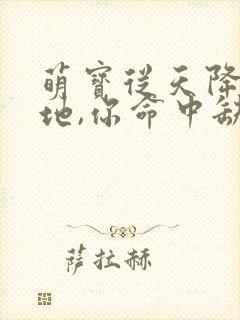 萌寶從天降
地,你命中缺
薩拉赫